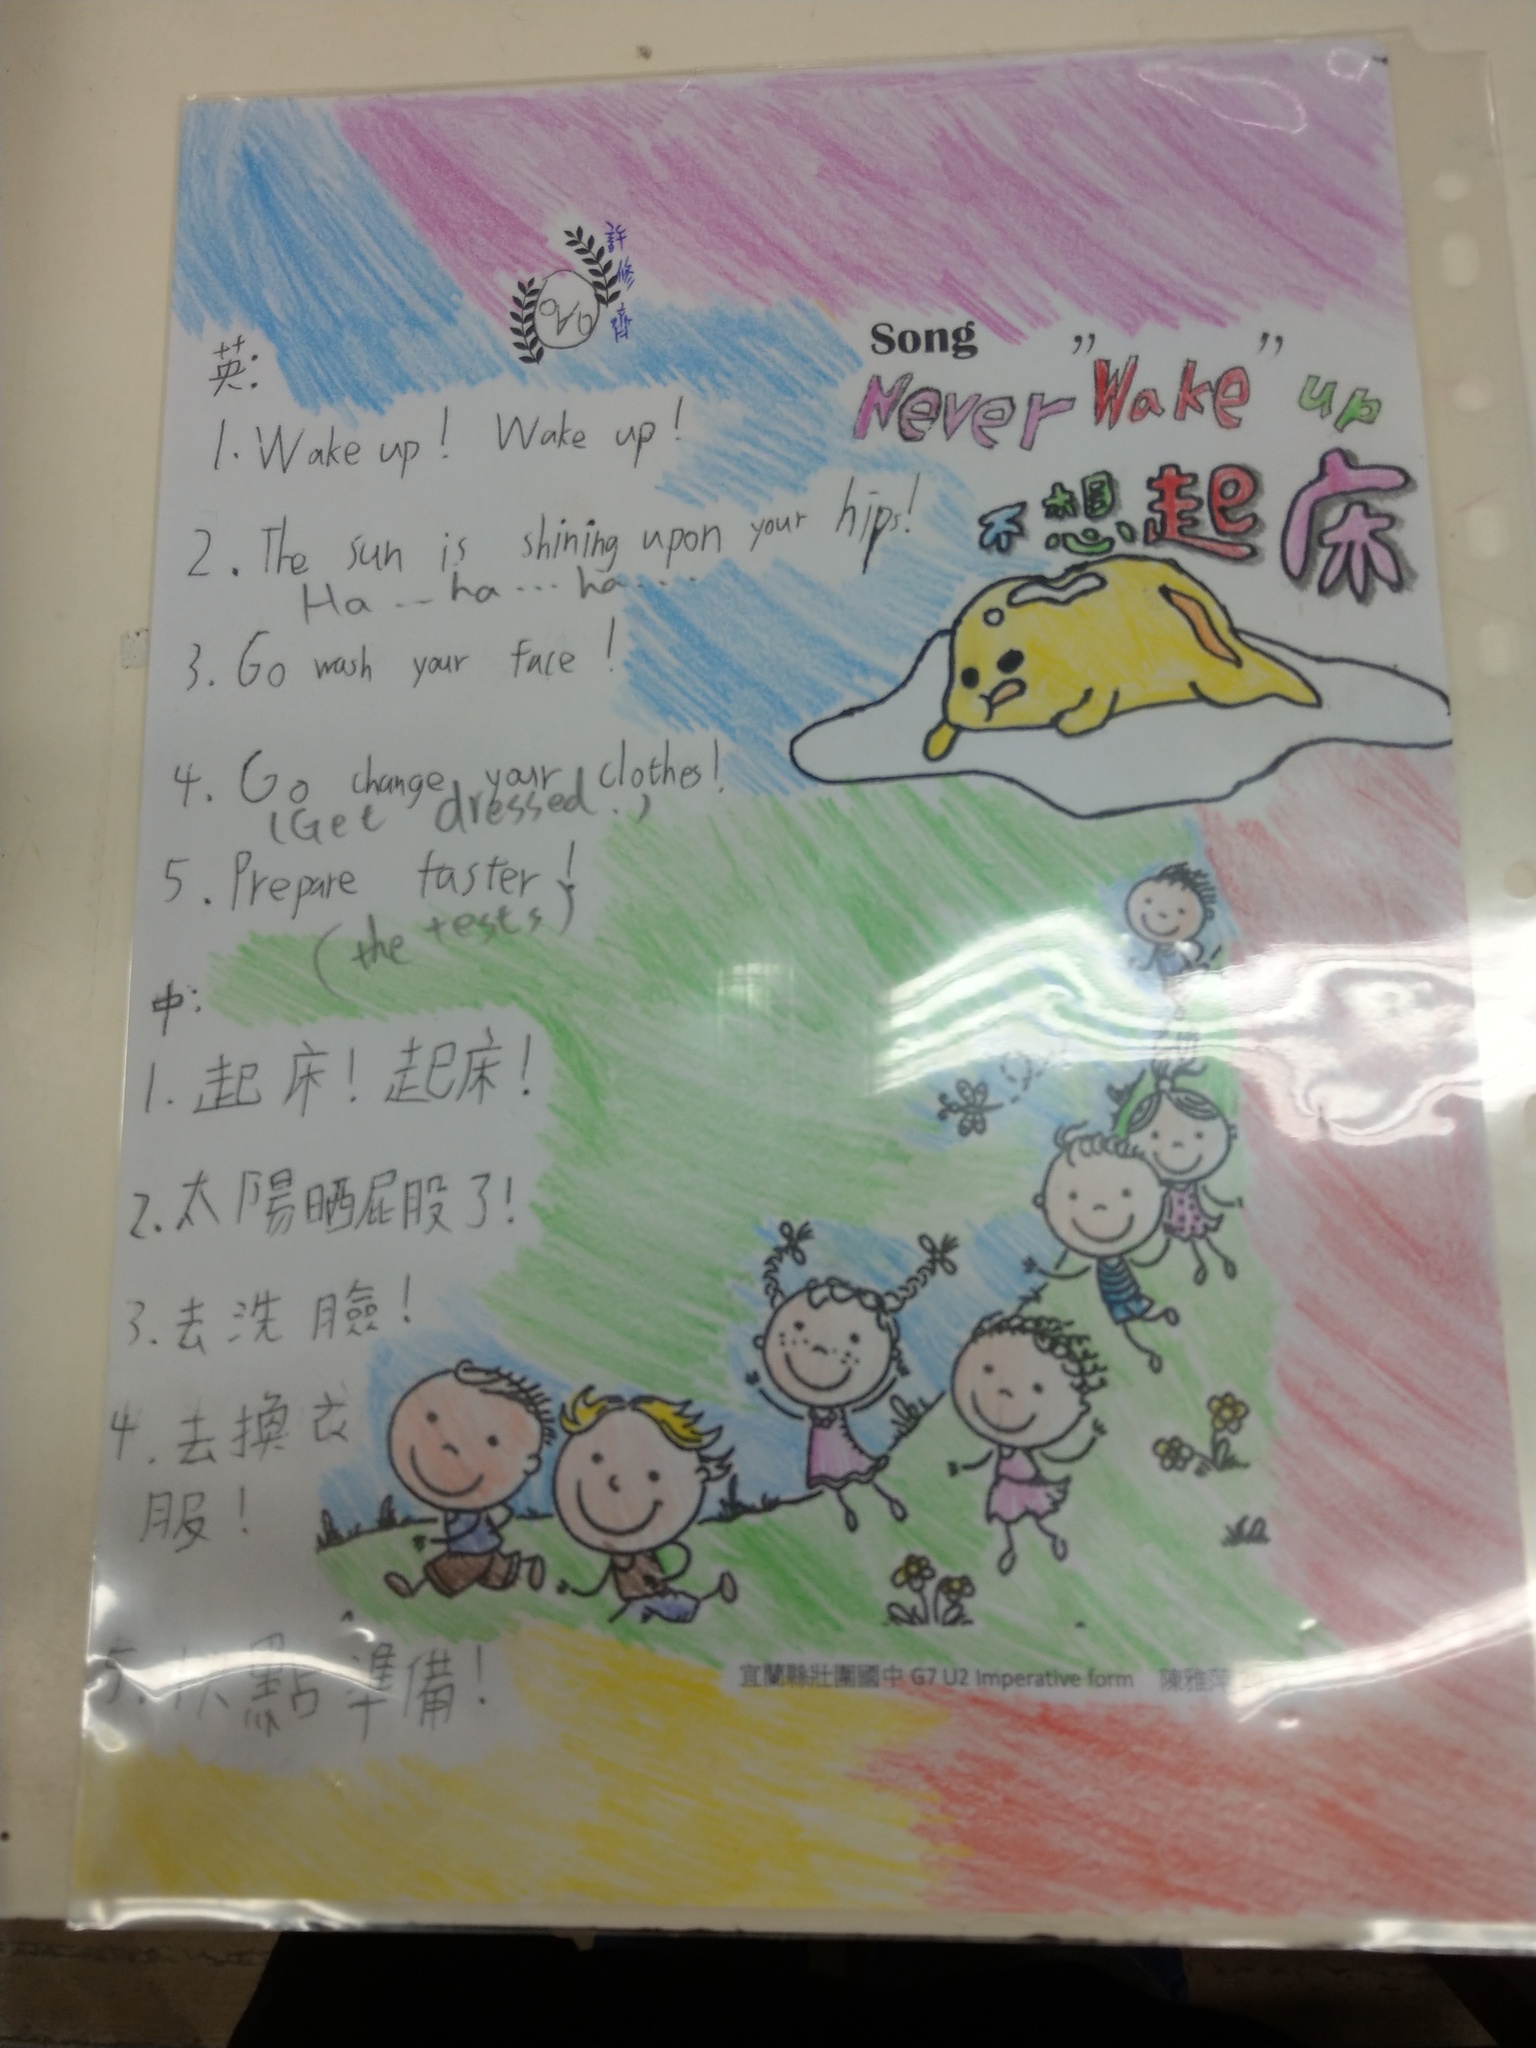 許修齊
Song
Never "Wake" up
不想起床
英:
1. Wake up! Wake up!
2. The sun is shining upon your hips!
Ha...ha...ha....
3. Go wash your face!
4. Go change your clothes!
(Get dressed.)
5. Prepare faster!
(the tests)
中:
1. 起床! 起床!
2. 太陽晒屁股了!
3. 去洗臉!
4. 去換衣
服!
5. 快點準備!
宜蘭縣壯圍國中 G7 U2 Imperative form 陳雅萍